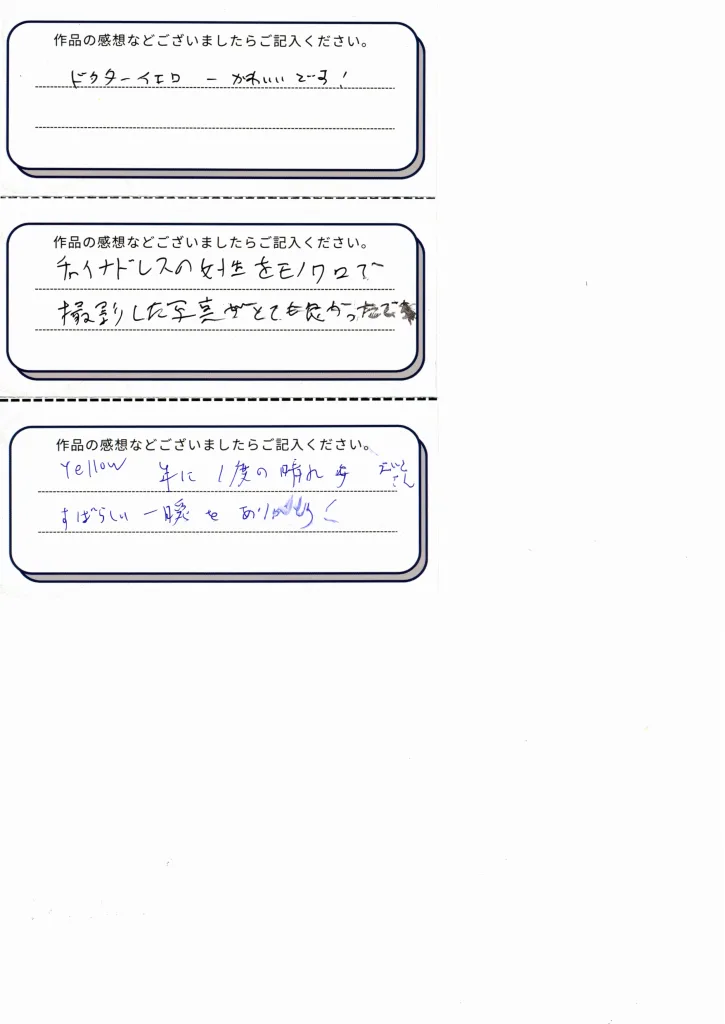 作品の感想などございましたらご記入ください。
ドクターイエローかわいいです!
作品の感想などございましたらご記入ください。
チャイナドレスの女性をモノクロで
撮影した写真がとても良かったです
作品の感想などございましたらご記入ください。
Yellow 年に1度の晴れ
すばらしい一瞬をありがとう!